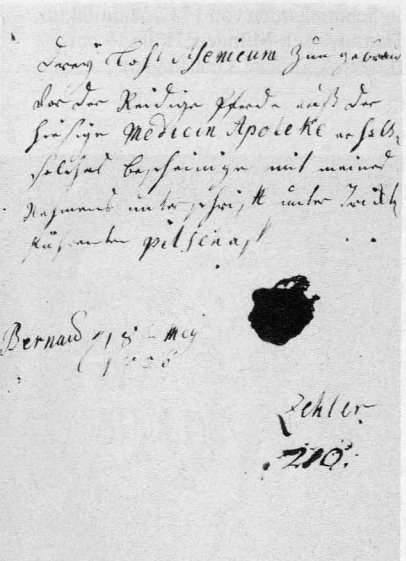 Dreÿ Loht Arsenicum Zum gebrau
vor der Reidige Pferde auß der
hiesige Medicin Apoteke erhalt,
solches bescheinige mit meines
Nahmens unterschrifft unter
pitschaft
Bernau 18 Meÿ
Zehler
210.